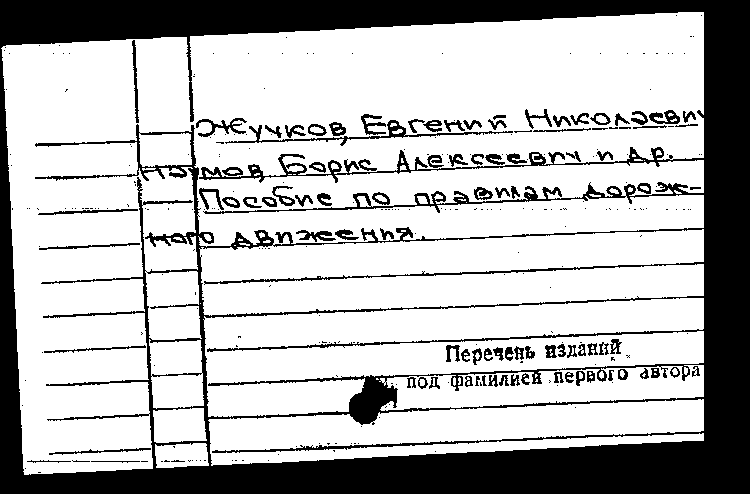 Жучков, Евгений Николаевич
Наумов, Борис Алексеевич и др.
Пособие по правилам дорож-
ного движения.
Перечень изданий
под фамилией первого автора